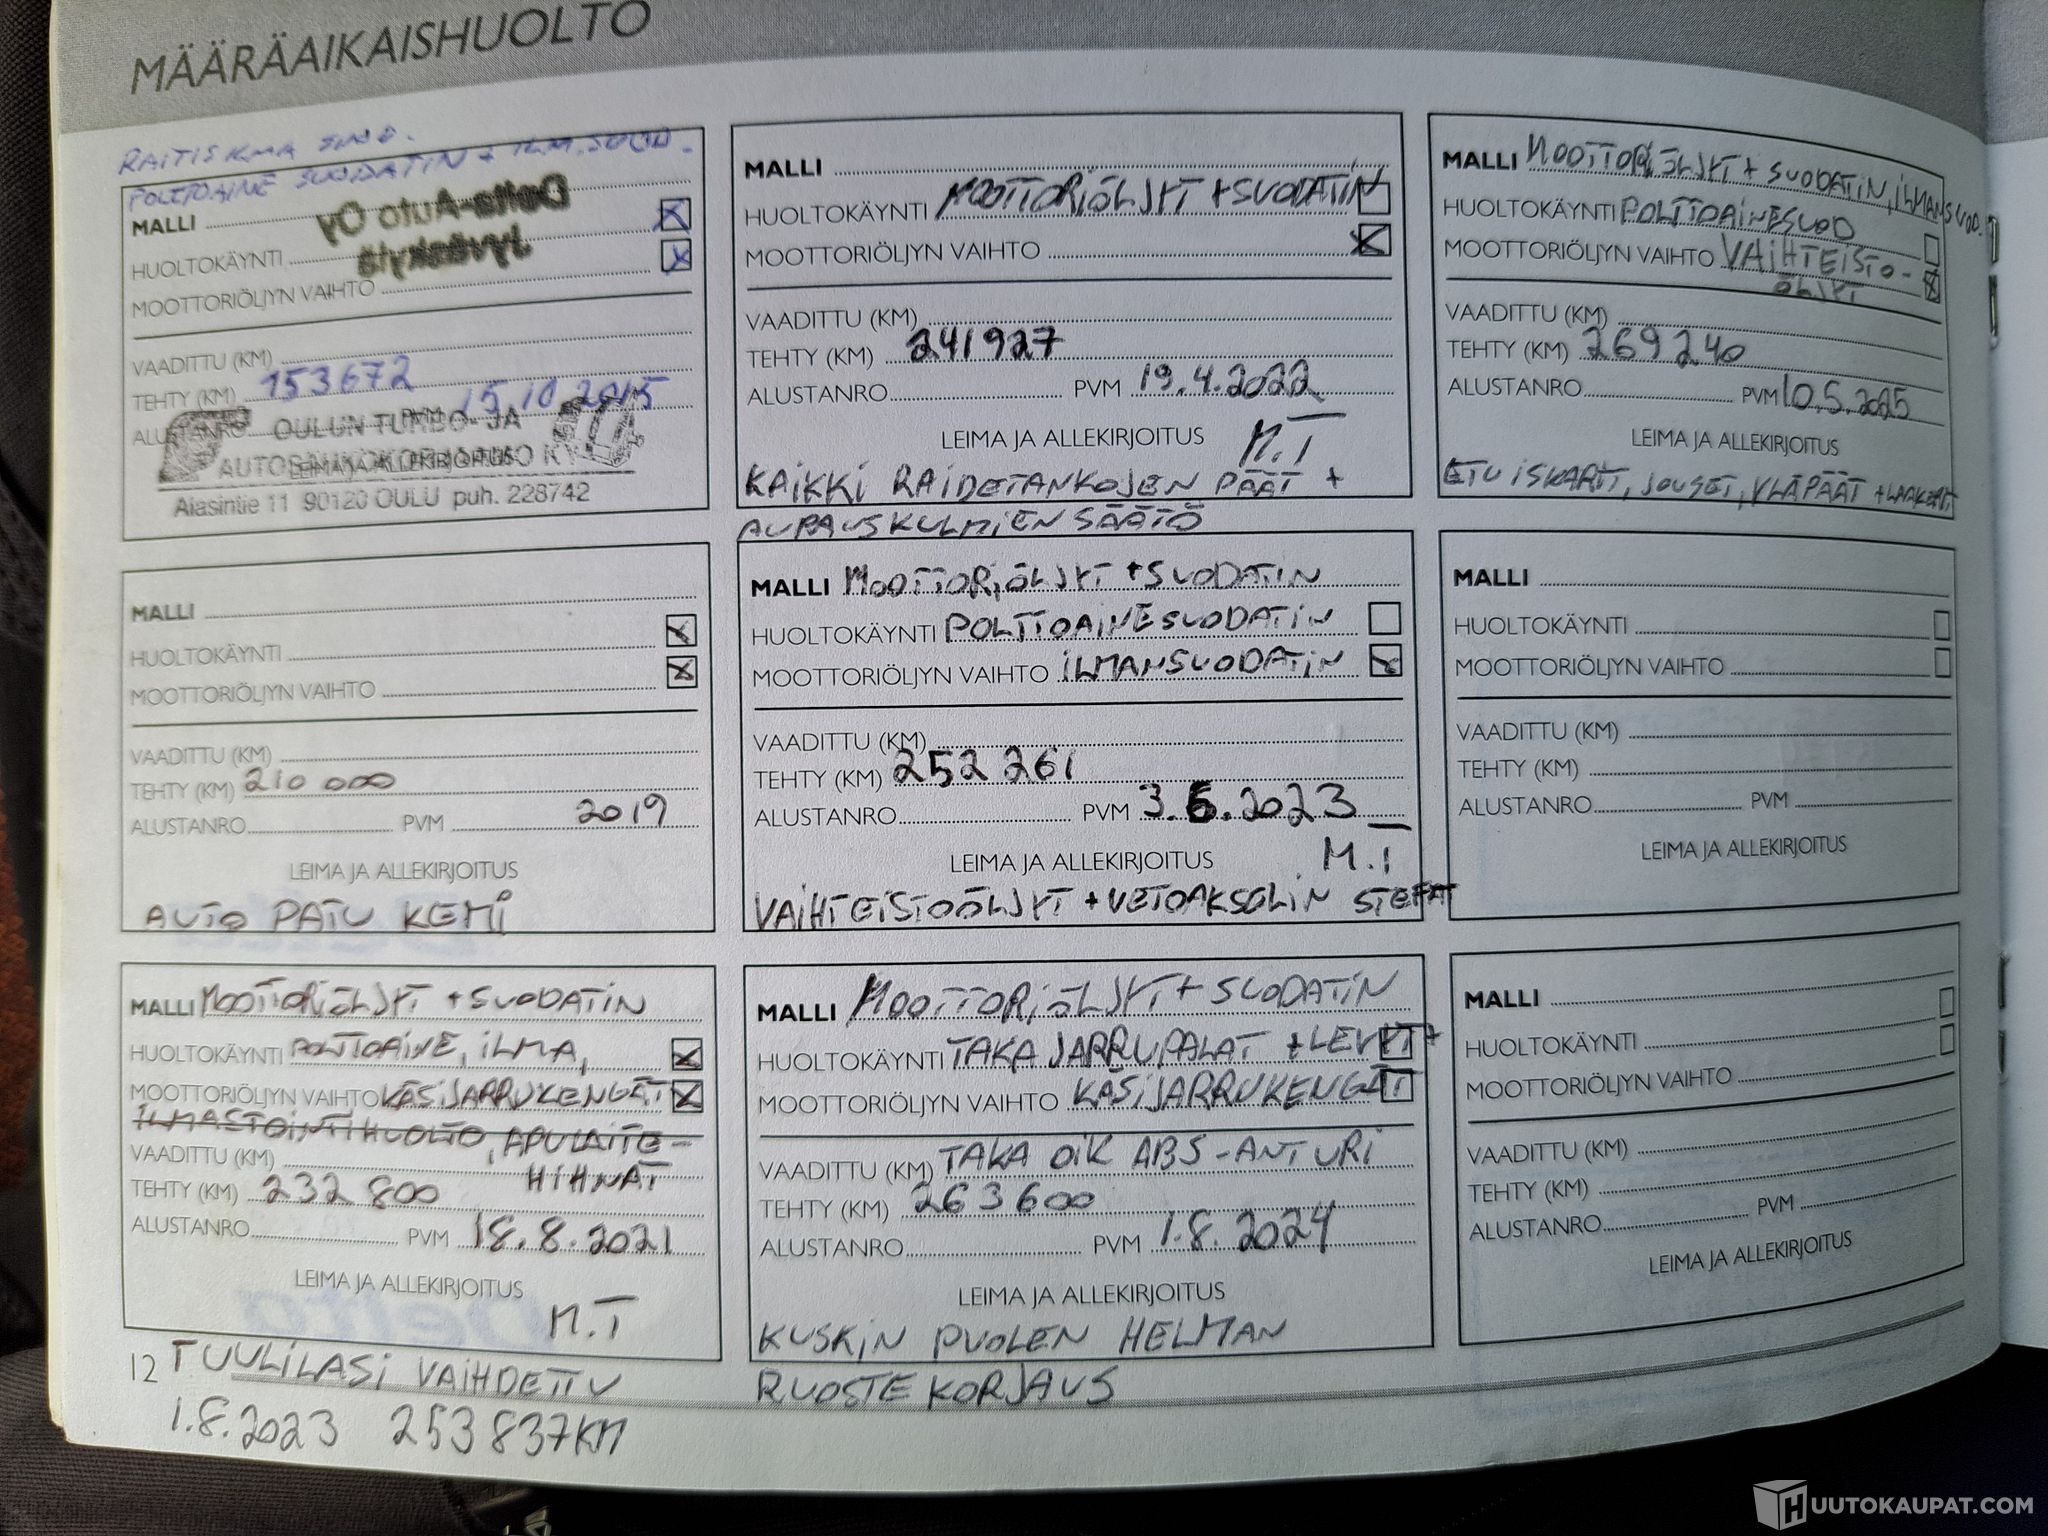 MÄÄRÄAIKAISHUOLTO
RAITISILMA SUOD.
POLTTOAINE SUODATIN + ILM.SUOD.
MALLI
Delta-Auto Oy
Jyväskylä
HUOLTOKÄYNTI
MOOTTORIÖLJYN VAIHTO
VAADITTU (KM)
TEHTY (KM) 153672
ALUSTANRO PVM 15.10.2015
OULUN TURBO- JA
LEIMA JA ALLEKIRJOITUS
Alasintie 11 90120 OULU puh. 228742
MALLI
HUOLTOKÄYNTI
MOOTTORIÖLJYN VAIHTO
VAADITTU (KM)
TEHTY (KM) 210 000
ALUSTANRO PVM 2019
LEIMA JA ALLEKIRJOITUS
AUTO PATU KEMI
MALLI MOOTTORIÖLJYT + SUODATIN
HUOLTOKÄYNTI POLTTOAINE, ILMA,
MOOTTORIÖLJYN VAIHTO KÄSIJARRUKENGÄT
ILMASTOINTIHUOLTO, APULAITE-
VAADITTU (KM) HIHNAT
TEHTY (KM) 232 800
ALUSTANRO PVM 18.8.2021
LEIMA JA ALLEKIRJOITUS
M.T
12 TUULILASI VAIHDETTU
1.8.2023 253837KM
MALLI
HUOLTOKÄYNTI MOOTTORIÖLJYT + SUODATIN
MOOTTORIÖLJYN VAIHTO
VAADITTU (KM)
TEHTY (KM) 241927
ALUSTANRO PVM 19.4.2022
LEIMA JA ALLEKIRJOITUS M.T
KAIKKI RAIDETANKOJEN PÄÄT +
AURAUSKULMIEN SÄÄTÖ
MALLI MOOTTORIÖLJYT + SUODATIN
HUOLTOKÄYNTI POLTTOAINESUODATIN
MOOTTORIÖLJYN VAIHTO ILMANSUODATIN
VAADITTU (KM)
TEHTY (KM) 252 261
ALUSTANRO PVM 3.6.2023
LEIMA JA ALLEKIRJOITUS M.T
VAIHTEISTOÖLJYT + VETOAKSELIN STEFAT
MALLI MOOTTORIÖLJYT + SUODATIN
HUOLTOKÄYNTI TAKA JARRUPALAT + LEVYT +
MOOTTORIÖLJYN VAIHTO KÄSIJARRUKENGÄT
VAADITTU (KM) TAKA OIK ABS-ANTURI
TEHTY (KM) 263600
ALUSTANRO PVM 1.8.2024
LEIMA JA ALLEKIRJOITUS
KUSKIN PUOLEN HELMAN
RUOSTEKORJAUS
MALLI MOOTTORIÖLJYT + SUODATIN, ILMANSUOD.
HUOLTOKÄYNTI POLTTOAINESUOD
MOOTTORIÖLJYN VAIHTO VAIHTEISTO-
ÖLJYT
VAADITTU (KM)
TEHTY (KM) 269240
ALUSTANRO PVM 10.5.2025
LEIMA JA ALLEKIRJOITUS
ETU ISKARIT, JOUSET, YLÄPÄÄT + LAAKERIT
MALLI
HUOLTOKÄYNTI
MOOTTORIÖLJYN VAIHTO
VAADITTU (KM)
TEHTY (KM)
ALUSTANRO PVM
LEIMA JA ALLEKIRJOITUS
MALLI
HUOLTOKÄYNTI
MOOTTORIÖLJYN VAIHTO
VAADITTU (KM)
TEHTY (KM)
ALUSTANRO PVM
LEIMA JA ALLEKIRJOITUS
HUUTOKAUPAT.COM